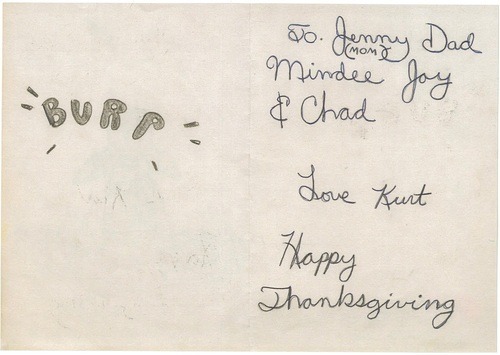 BURP
To. Jenny Dad
(MOM)
Mindee Joy
& Chad
Love Kurt
Happy
Thanksgiving